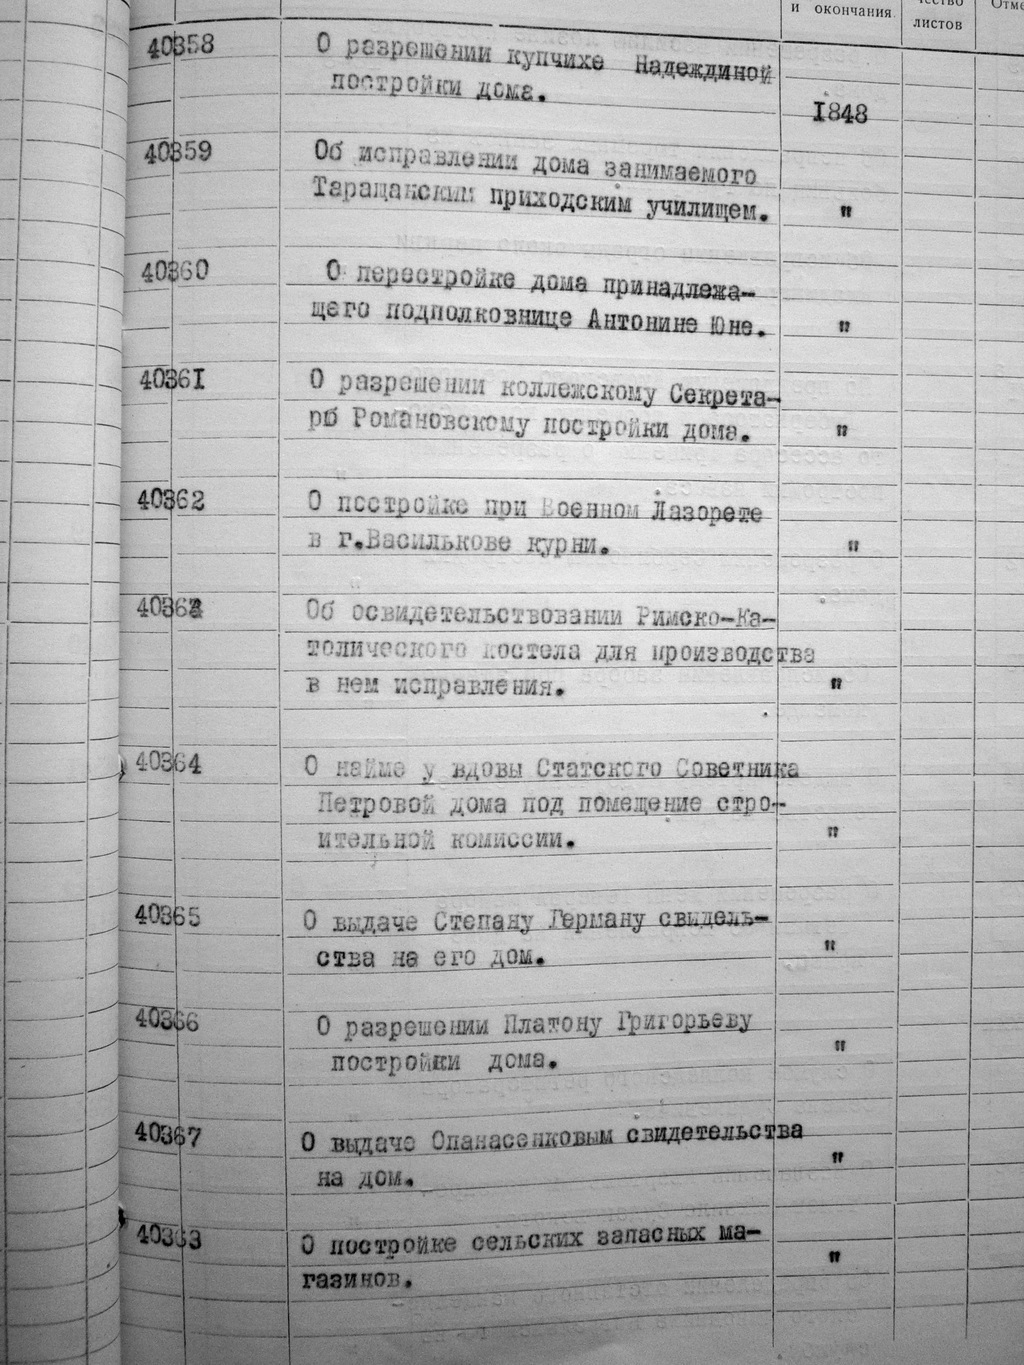 и окончания.
чество
листов
Отме
40358 О разрешении купчихе Надеждиной
постройки дома.
1848
40359 Об исправлении дома занимаемого
Таращанским приходским училищем. "
40360 О перестройке дома принадлежа-
щего подполковнице Антонине Юне. "
40361 О разрешении коллежскому Секрета-
рб Романовскому постройки дома. "
40362 О постройке при Военном Лазорете
в г.Василькове курни. "
40363 Об освидетельствовании Римско-Ка-
толического костела для производства
в нем исправления. "
40364 О найме у вдовы Статского Советника
Петровой дома под помещение стро-
ительной комиссии. "
40365 О выдаче Степану Герману свидель-
ства на его дом. "
40366 О разрешении Платону Григорьеву
постройки дома. "
40367 О выдаче Опанасенковым свидетельства
на дом. "
О постройке сельских запасных ма-
газинов. "